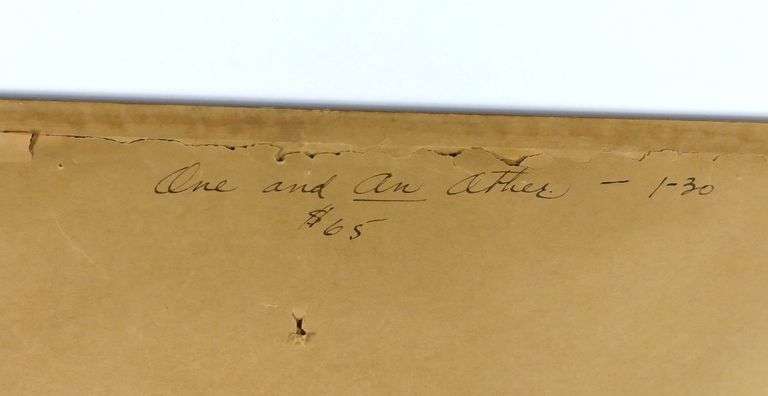 One and An Other. — 1-30
$65